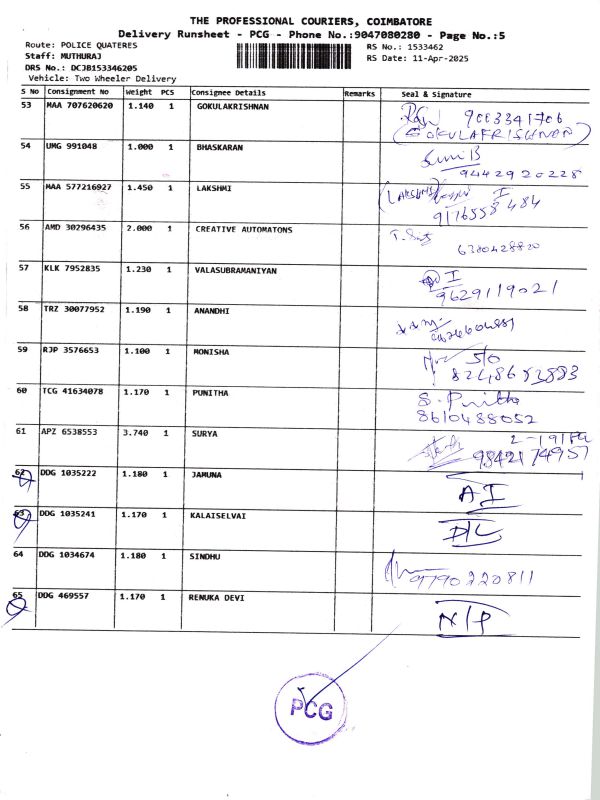 THE PROFESSIONAL COURIERS, COIMBATORE
Delivery Runsheet - PCG - Phone No.:9047080280 - Page No.:5
Route: POLICE QUATERES RS No.: 1533462
Staff: MUTHURAJ RS Date: 11-Apr-2025
DRS No.: DCJB153346205
Vehicle: Two Wheeler Delivery
S No Consignment No Weight PCS Consignee Details Remarks Seal & Signature
53 MAA 707620620 1.140 1 GOKULAKRISHNAN 9003341706
(GOKULAKRISHNEN)
54 UMG 991048 1.000 1 BHASKARAN
9442920228
55 MAA 577216927 1.450 1 LAKSHMI (LAKSHMI) I
9176558484
56 AMD 30296435 2.000 1 CREATIVE AUTOMATONS
6380428820
57 KLK 7952835 1.230 1 VALASUBRAMANIYAN I
9629119021
58 TRZ 30077952 1.190 1 ANANDHI
59 RJP 3576653 1.100 1 MONISHA S/O
60 TCG 41634078 1.170 1 PUNITHA S. Punitha
8610488052
61 APZ 6538553 3.740 1 SURYA
9842174957
62 DDG 1035222 1.180 1 JAMUNA AI
63 DDG 1035241 1.170 1 KALAISELVAI D/L
64 DDG 1034674 1.180 1 SINDHU 9790220811
65 DDG 469557 1.170 1 RENUKA DEVI N/P
PCG